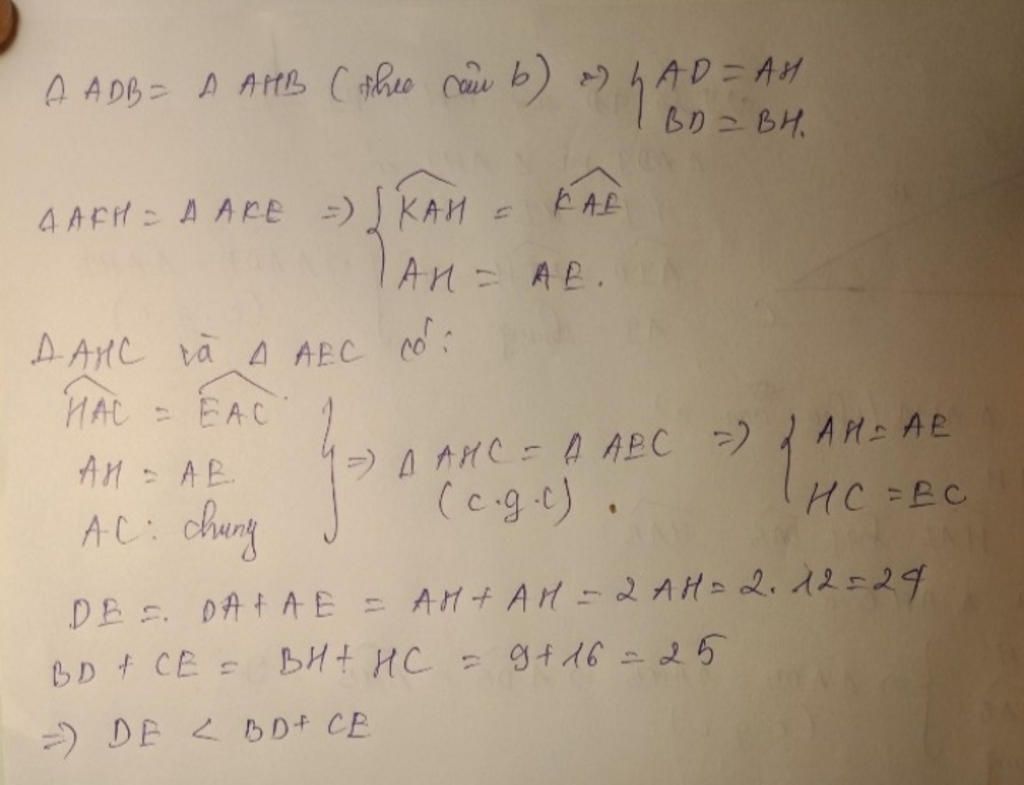 Δ ADB = Δ AHB (theo câu b) => { AD = AH
BD = BH.
Δ AKH = Δ AKE => { KAH = KAE
AH = AE.
Δ AHC và Δ AEC có:
HAC = EAC
AH = AE
AC: chung
} => Δ AHC = Δ AEC => { AH = AE
(c.g.c). HC = EC
DE = DA + AE = AH + AH = 2 AH = 2. 12 = 24
BD + CE = BH + HC = 9 + 16 = 25
=> DE < BD + CE